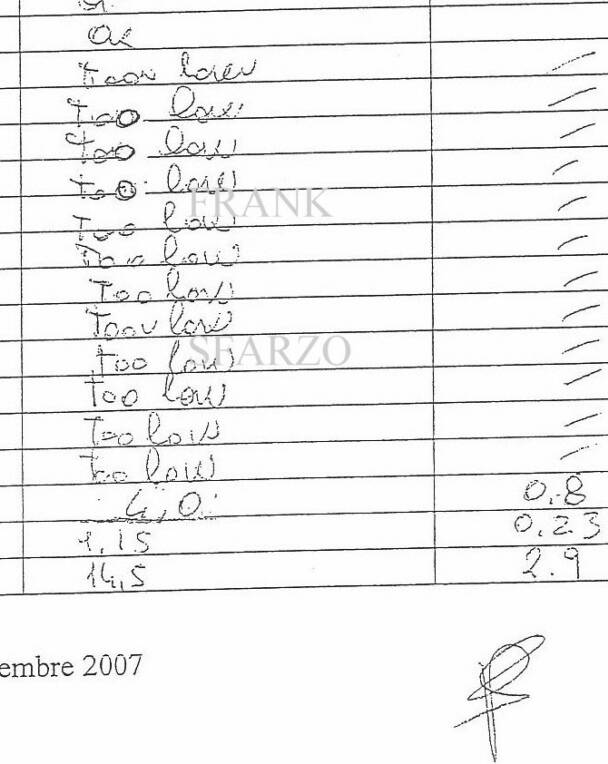 ok
Too low /
Too low /
Too low /
Too low /
Too low /
Too low /
Too low /
Too low /
Too low /
Too low /
Too low /
Too low /
4,0 0.8
1,15 0.23
14,5 2.9
FRANK
SFARZO
embre 2007